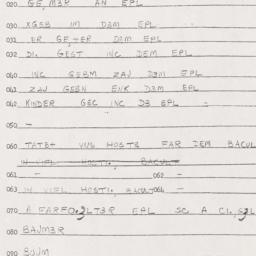 020 GE,M3R AN EPL
030 XGEB IM D3M EPL
031 ER GE,-ER D3M EPL
032 DI. GEST INC DEM EPL
040 INC GEBM ZAJ D3M EPL
041 ZAJ GEBN ENK D3M EPL
042 KINDER GEC INC D3 EPL -
050 -
060 TATB+ VUL HOSTB FAR DEM BACUL
IN VIFL HOSTI, BACUL
061 - 062 -
063 IN VIFL HOSTI, 064 -
070 A FARFO,3LT3R EPL SC A CI,S3L
080 BAJM3R
090 BOJM